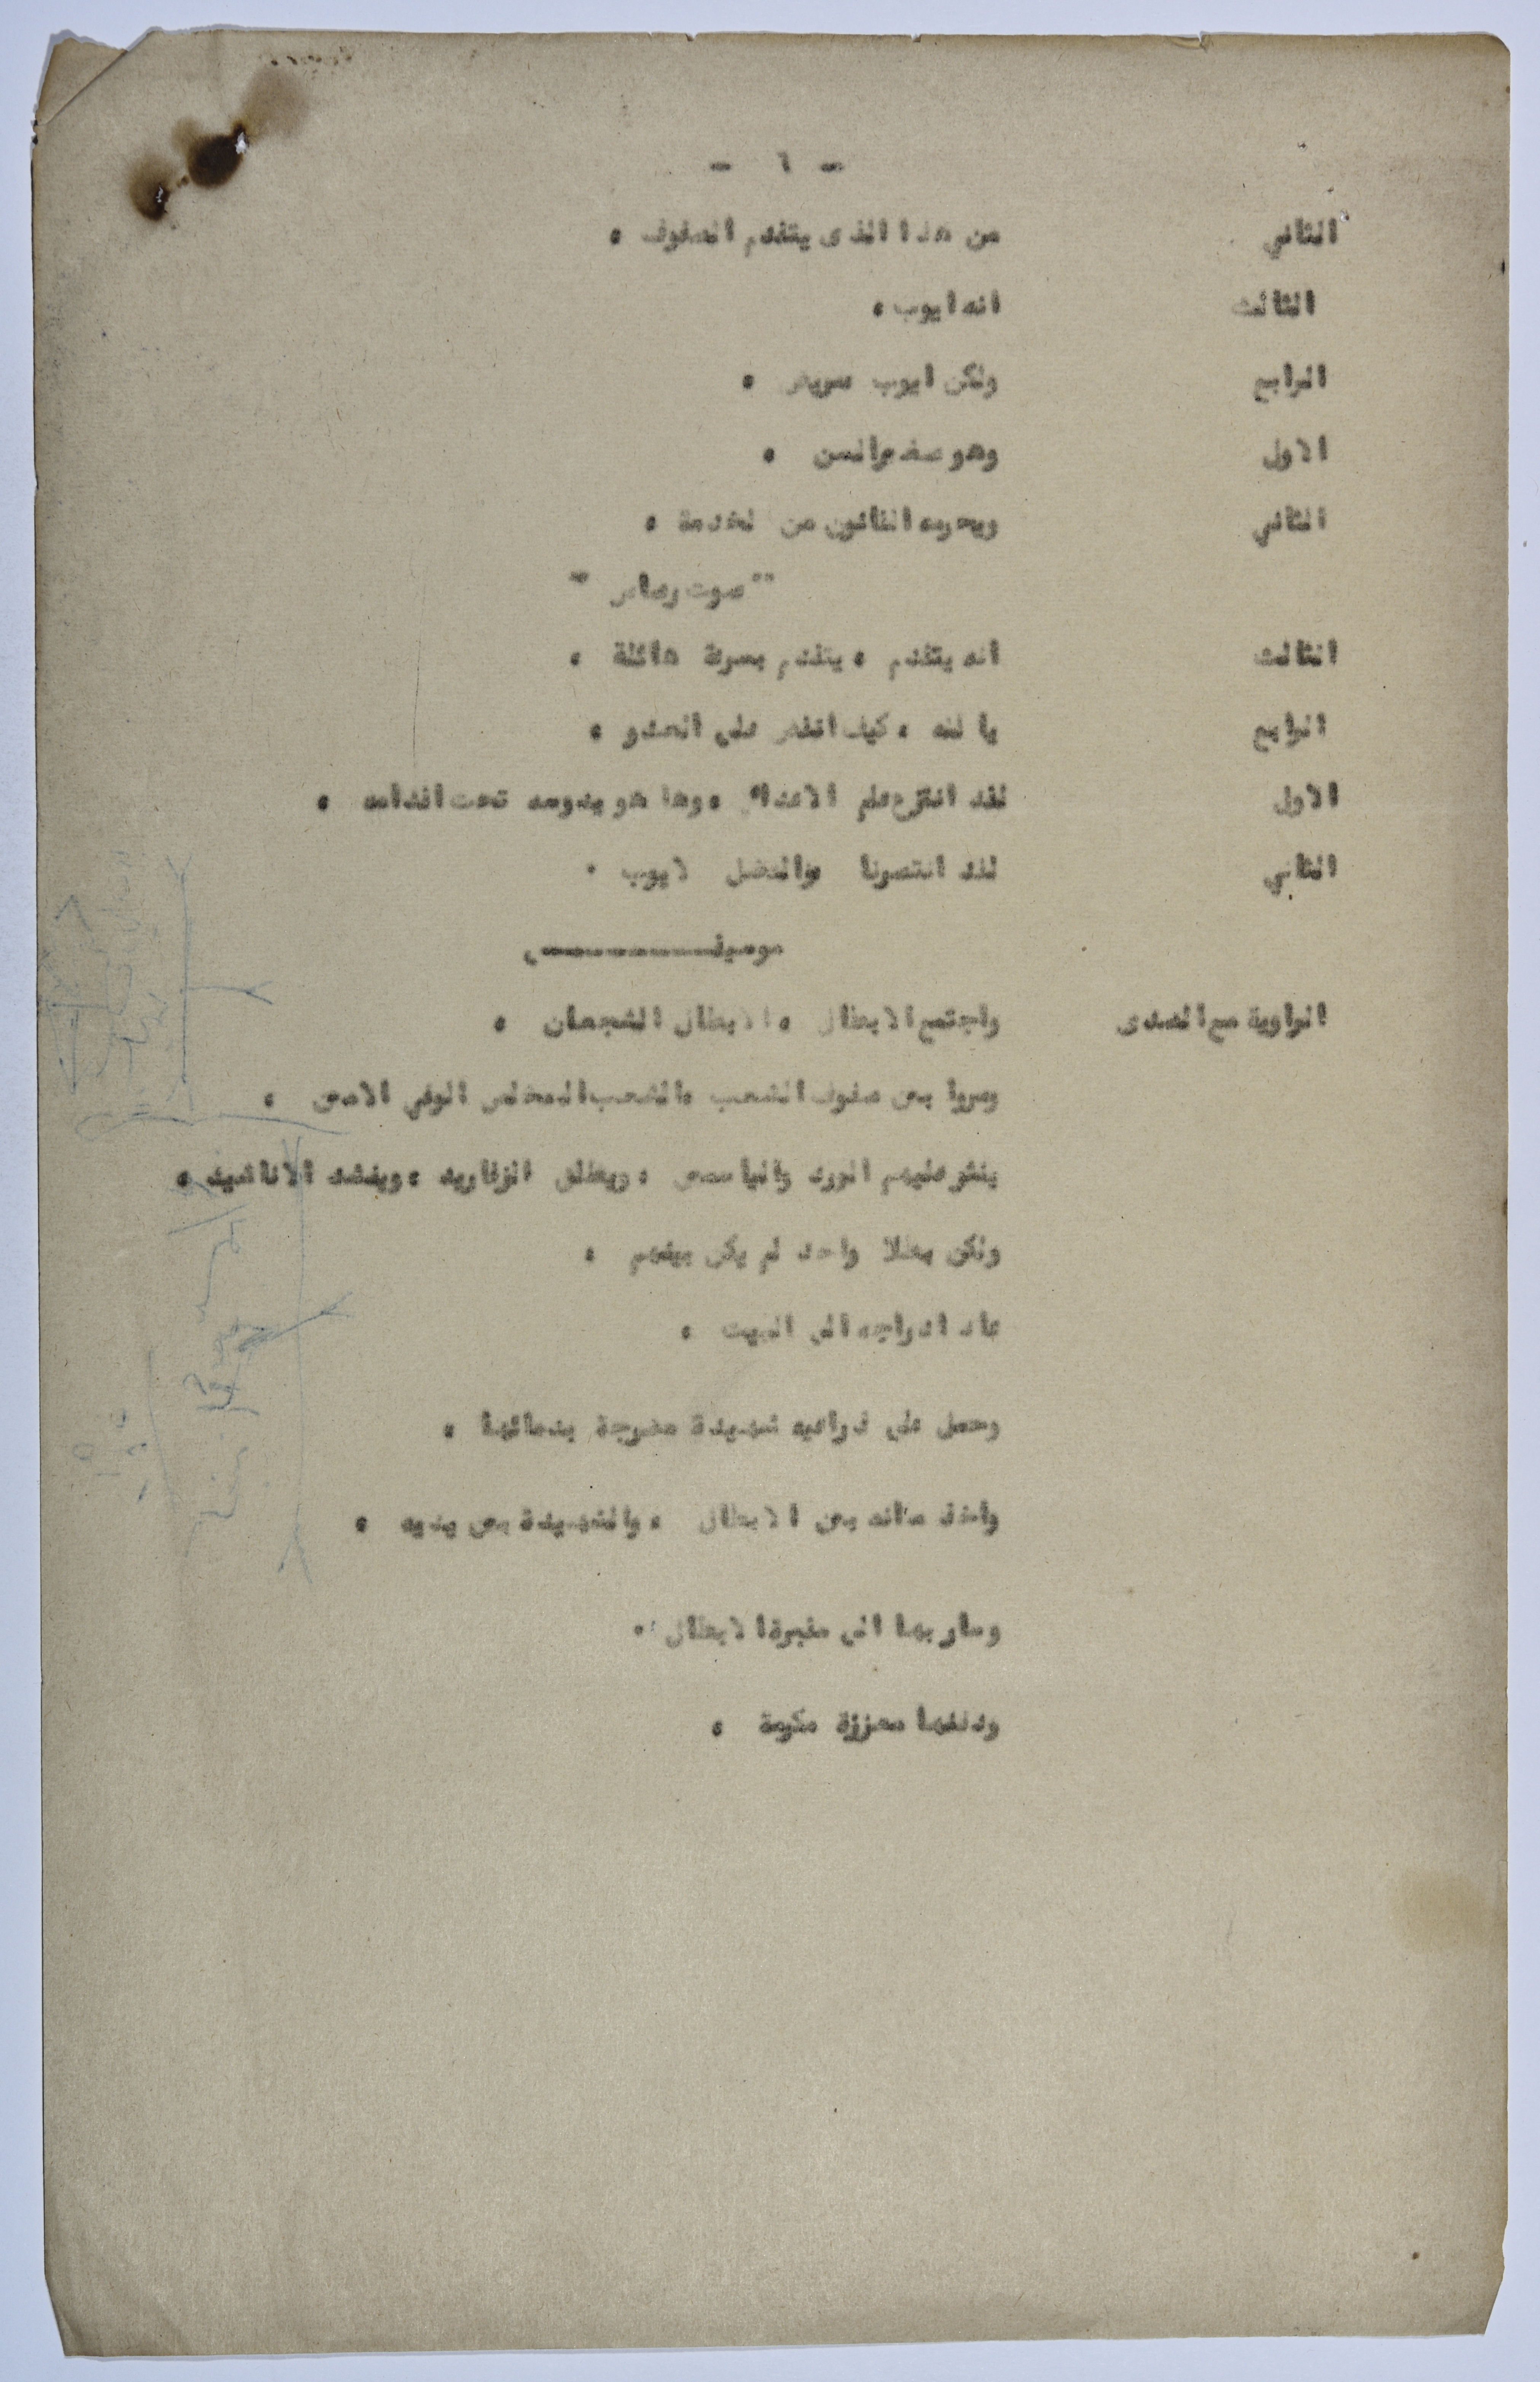 - ٦ -
الثاني من هذا الذى يتقدم الصفوف .
الثالث انه ايوب .
الرابع ولكن ايوب مريض .
الاول وهو صغير السن .
الثاني ويحرمه القانون من لخدمة .
" صوت رصاص "
الثالث انه يتقدم ، يتقدم بسرعة هائلة .
الرابع يا لله ، كيف انقض على العدو .
الاول لقد انتزع علم الاعداء ، وها هو يدوسه تحت اقدامه .
الثاني لقد انتصرنا والفضل لايوب .
موسيقـــــــــى
الراوية مع الصدى واجتمع الابطال ، الابطال الشجعان .
ومروا بين صفوف الشعب ، الشعب المخلص الوفي الامين .
ينثر عليهم الورد والياسمين ، ويطلق الزغاريد ، وينشد الاناشيد .
ولكن بطلا واحد لم يكن بينهم .
عاد ادراجه الى البيت .
وحمل على ذراعيه شهيدة مضرجة بدمائها .
واخذ مكانه بين الابطال ، والشهيدة بين يديه .
وسار بها الى مقبرة الابطال .
ودفنها معززة مكرمة .